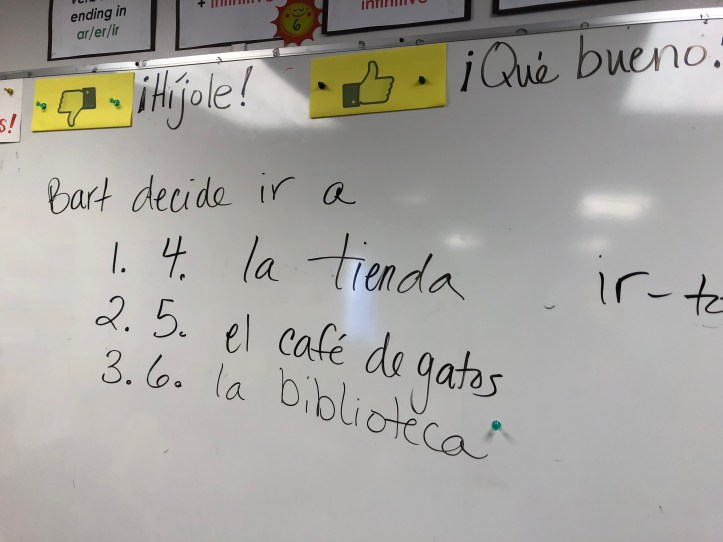 ending in
ar/er/ir
+ infinitive
infinitive
6
s!
¡Híjole!
¡Qué bueno!
Bart decide ir a
1. 4. la tienda
2. 5. el café de gatos
3. 6. la biblioteca
ir - to